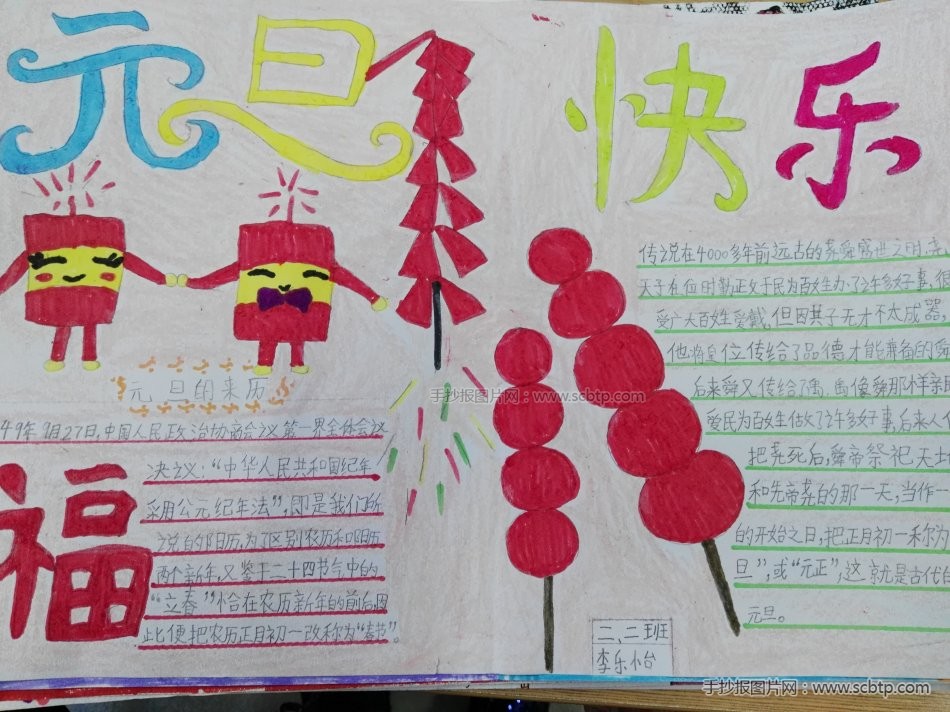 元旦快乐
元旦的来历
49年9月27日,中国人民政治协商会议第一界全体会议
决议:“中华人民共和国纪年
采用公元纪年法”,即是我们所
说的阳历,为了区别农历和阳历
两个新年,又鉴于二十四节气中的
“立春”恰在农历新年的前后因
此便把农历正月初一改称为“春节”。
福
传说在4000多年前远古的尧舜盛世之时,尧
天子在位时勤正于民为百姓办了许多好事,很
受广大百姓爱戴,但因其子无才不太成器,
他将自位传给了品德才能兼备的
后来舜又传给了禹,禹像舜那样亲
爱民为百姓做了许多好事,后来人
把尧死后,舜帝祭祀天土
和先帝尧的那一天,当作一
的开始之日,把正月初一称为
旦”,或“元正”,这就是古代的
元旦。
二、二班
李乐怡
手抄报图片网:www.scbtp.com
手抄报图片网:www.scbtp.com